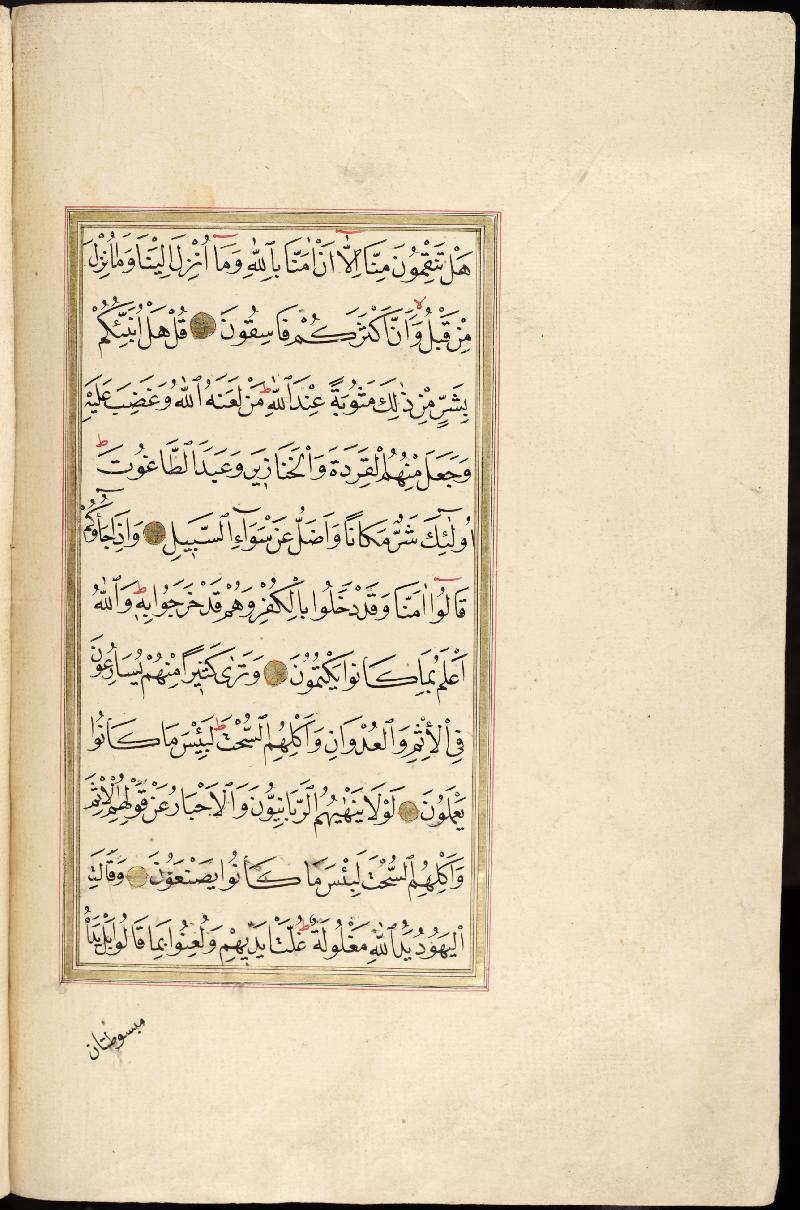 هَلْ تَنْقِمُونَ مِنَّا اِلَّا اَنْ اٰمَنَّا بِاللّٰهِ وَمَا اُنْزِلَ اِلَيْنَا وَمَا اُنْزِلَ
مِنْ قَبْلُ وَاَنَّ اَكْثَرَكُمْ فَاسِقُونَ قُلْ هَلْ اُنَبِّئُكُمْ
بِشَرٍّ مِنْ ذٰلِكَ مَثُوبَةً عِنْدَ اللّٰهِ ط مَنْ لَعَنَهُ اللّٰهُ وَغَضِبَ عَلَيْهِ
وَجَعَلَ مِنْهُمُ الْقِرَدَةَ وَالْخَنَازِيرَ وَعَبَدَ الطَّاغُوتَ ط
اُولٰئِكَ شَرٌّ مَكَانًا وَاَضَلُّ عَنْ سَوَاءِ السَّبِيلِ وَاِذَا جَاؤُكُمْ
قَالُوا اٰمَنَّا وَقَدْ دَخَلُوا بِالْكُفْرِ وَهُمْ قَدْ خَرَجُوا بِهِ ط وَاللّٰهُ
اَعْلَمُ بِمَا كَانُوا يَكْتُمُونَ وَتَرٰى كَثِيرًا مِنْهُمْ يُسَارِعُونَ
فِي الْاِثْمِ وَالْعُدْوَانِ وَاَكْلِهِمُ السُّحْتَ ط لَبِئْسَ مَا كَانُوا
يَعْمَلُونَ لَوْلَا يَنْهٰيهُمُ الرَّبَّانِيُّونَ وَالْاَحْبَارُ عَنْ قَوْلِهِمُ الْاِثْمَ
وَاَكْلِهِمُ السُّحْتَ لَبِئْسَ مَا كَانُوا يَصْنَعُونَ وَقَالَتِ
الْيَهُودُ يَدُ اللّٰهِ مَغْلُولَةٌ ط غُلَّتْ اَيْدِيهِمْ وَلُعِنُوا بِمَا قَالُوا بَلْ يَدَاهُ
مبسوطتان